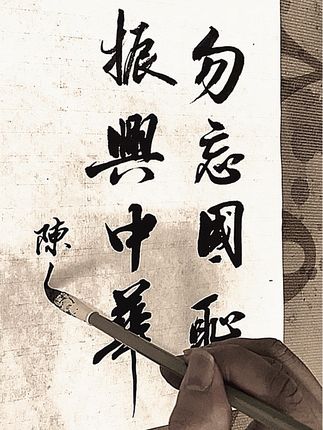 勿忘國恥
振興中華
陳